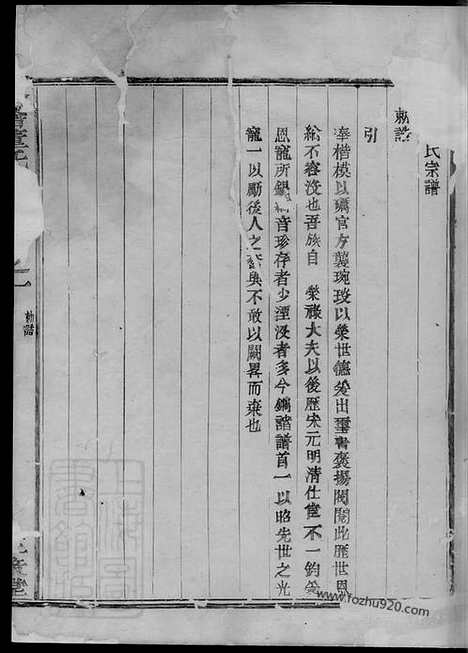 氏宗譜
敕誥
引
奉楷模以礪官方襲琬琰以榮世德爰出璽書褒揚閥閱此歷世恩
綸不容沒也吾族自 榮祿大夫以後歷宋元明清仕宦不一鈞
恩寵所錫 音珍存者少湮沒者多今鐫誥譜首一以昭先世之光
寵一以勵後人之 與不敢以闕畧而棄也
敕誥
www.fozhu920.com